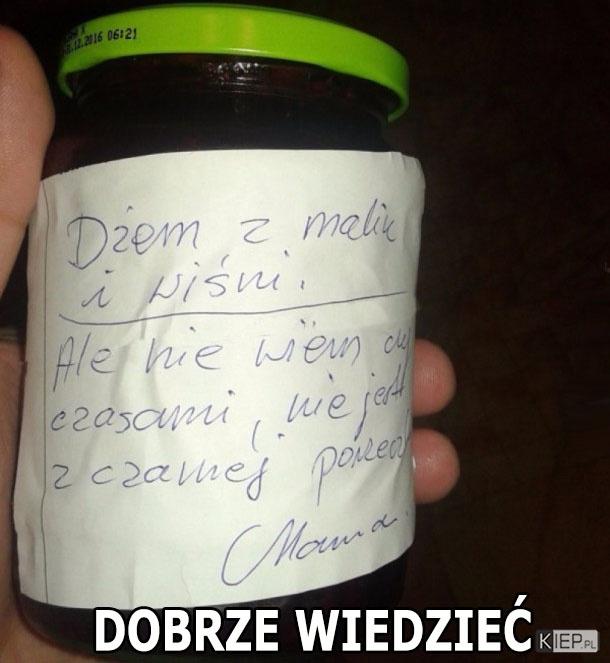 .12.2016 06:21
Dżem z malin
i wiśni.
Ale nie wiem czy
czasami, nie jest
z czarnej porzecz
Mama.
DOBRZE WIEDZIEĆ
KIEP.PL